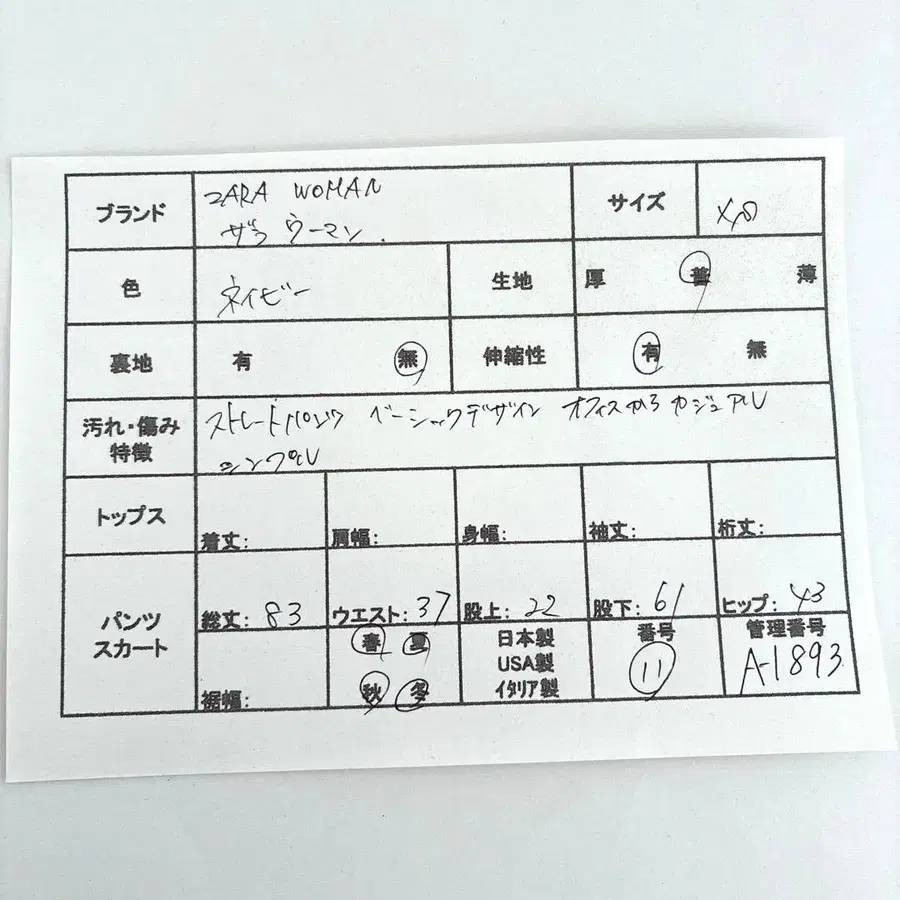 ブランド ZARA WOMAN サイズ
ザラ ウーマン.
色 ネイビー 生地 厚 普 薄
裏地 有 無 伸縮性 有 無
汚れ・傷み 特徴 ストレートパンツ ベーシックデザイン オフィスから カジュアル
シンプル
トップス 着丈: 肩幅: 身幅: 袖丈: 裄丈:
パンツ スカート 総丈: 83 ウエスト: 37 股上: 22 股下: 61 ヒップ: 43
裾幅: 春 夏 秋 冬
日本製
USA製
イタリア製
番号
11
管理番号
A-1893